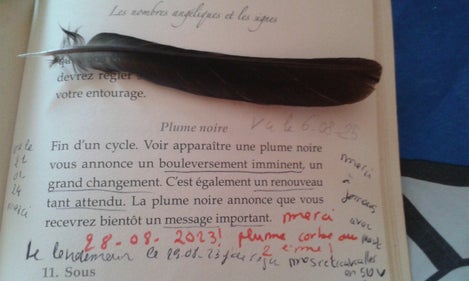 Les nombres angéliques et les signes
devrez régler
votre entourage.
Plume noire
Vu le 6-08-23
Fin d'un cycle. Voir apparaître une plume noire
vous annonce un bouleversement imminent, un
grand changement. C'est également un renouveau
tant attendu. La plume noire annonce que vous
recevrez bientôt un message important. merci
28-08-2023! plume corbeau
2 ème!
Le lendemain le 29.08.23 j'ai reçu mes
11. Sous
merci
à
avec
en SUV
24
merci